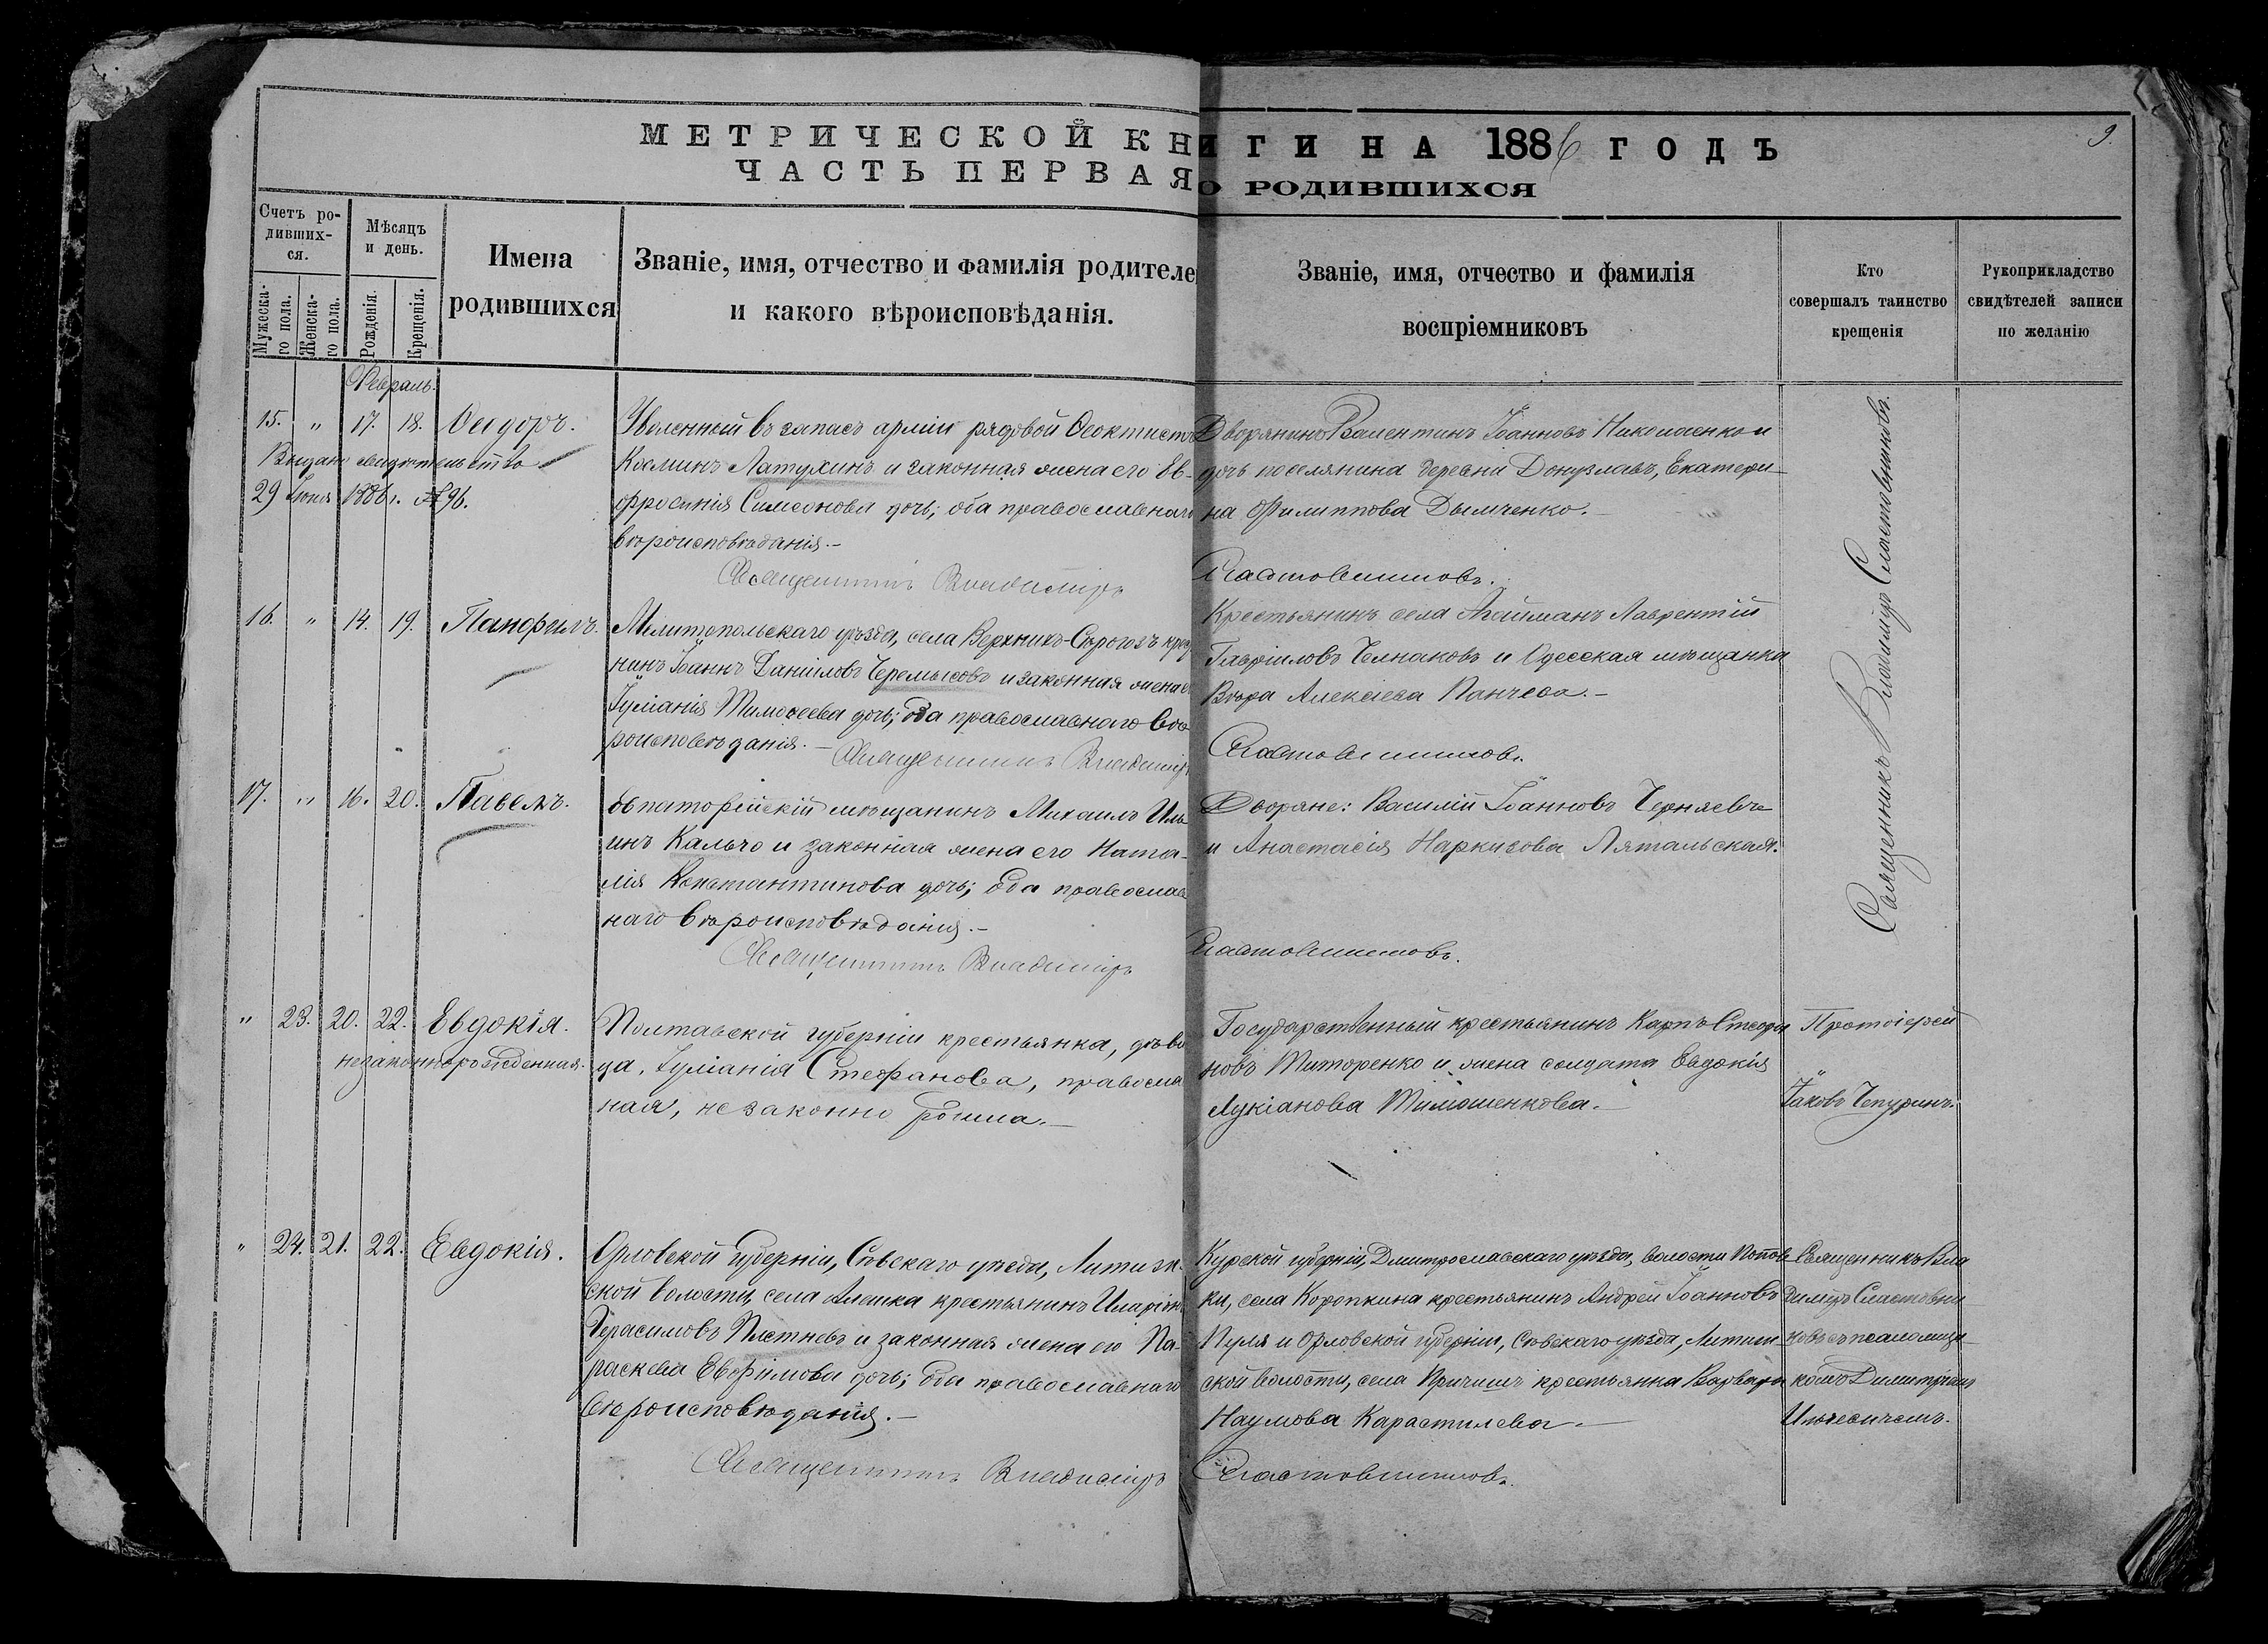 МЕТРИЧЕСКОЙ КНИГИ НА 1886 ГОДЪ
9.
ЧАСТЬ ПЕРВАЯ О РОДИВШИХСЯ
Счетъ ро-
дивших-
ся.
Мужеска-
го пола.
Женска-
го пола.
Мѣсяцъ
и день.
Рожденія.
Крещенія.
Имена
родившихся
Званіе, имя, отчество и фамилія родителе
и какого вѣроисповѣданія.
Званіе, имя, отчество и фамилія
воспріемниковъ
Кто
совершалъ таинство
крещенія
Рукоприкладство
свидѣтелей записи
по желанію
Февраль.
15. " 17. 18. Ѳеодоръ.
Выдано свидѣтельство
29 Іюня 1886 г. № 96.
Уволенный въ запасъ арміи рядовой Ѳеоктистъ
Косминъ Латухинъ и законная жена его Ев-
фросинія Симеонова дочь; оба православнаго
вѣроисповѣданія.-
Священникъ Владиміръ
Дворянинъ Валентинъ Іоанновъ Николаенко и
дочь поселянина деревни Донузлавъ, Екатери-
на Филиппова Дымченко.-
Сластовниковъ.
Священникъ Владиміръ Сластовниковъ.
16. " 14. 19. Панфилъ.
Мелитопольскаго уѣзда, села Верхнихъ-Сѣрогозъ крест
нинъ Іоаннъ Даніиловъ Черемысовъ и законная жена е
Іуліанія Тимоѳеева дочь; оба православнаго вѣ-
роисповѣданія.-
Священникъ Владиміръ
Крестьянинъ села Аджиманъ Лаврентій
Гавріиловъ Челнаковъ и Одесская мѣщанка
Вѣра Алексіева Панчева.-
Сластовниковъ.
17. " 16. 20. Павелъ.
Евпаторійскій мѣщанинъ Михаилъ Иль-
инъ Кальчо и законная жена его Ната-
лія Константинова дочь; оба православ
наго вѣроисповѣданія.-
Священникъ Владиміръ
Дворяне: Василій Іоанновъ Черняевъ
и Анастасія Наркизова Лятальская.
Сластовниковъ.
" 23. 20. 22. Евдокія.
незаконнорожденная.
Полтавской губерніи крестьянка, дѣви
ца, Іуліанія Стефанова, правосла
ная, незаконно родила.-
Государственный крестьянинъ Карпъ Стефа
новъ Титоренко и жена солдата Евдокія
Лукіанова Тимошенкова.-
Протоіерей
Іаковъ Чепуринъ.
" 24. 21. 22. Евдокія.
Орловской губерніи, Сѣвскаго уѣзда, Литиж-
ской волости, села Алешка крестьянинъ Иларіонъ
Герасимовъ Плетневъ и законная жена его Па-
раскева Евфимова дочь; оба православнаго
вѣроисповѣданія.-
Священникъ Владиміръ
Курской губерніи, Дмитрославскаго уѣзда, волости Попов
ки, села Коропкина крестьянинъ Андрей Іоанновъ
Пуля и Орловской губерніи, Сѣвскаго уѣзда, Литиж-
ской волости, села Причижъ крестьянка Варвара
Наумова Карастилева.-
Сластовниковъ.
Священникъ Вла
диміръ Сластовни
ковъ съ псаломщи
комъ Димитріемъ